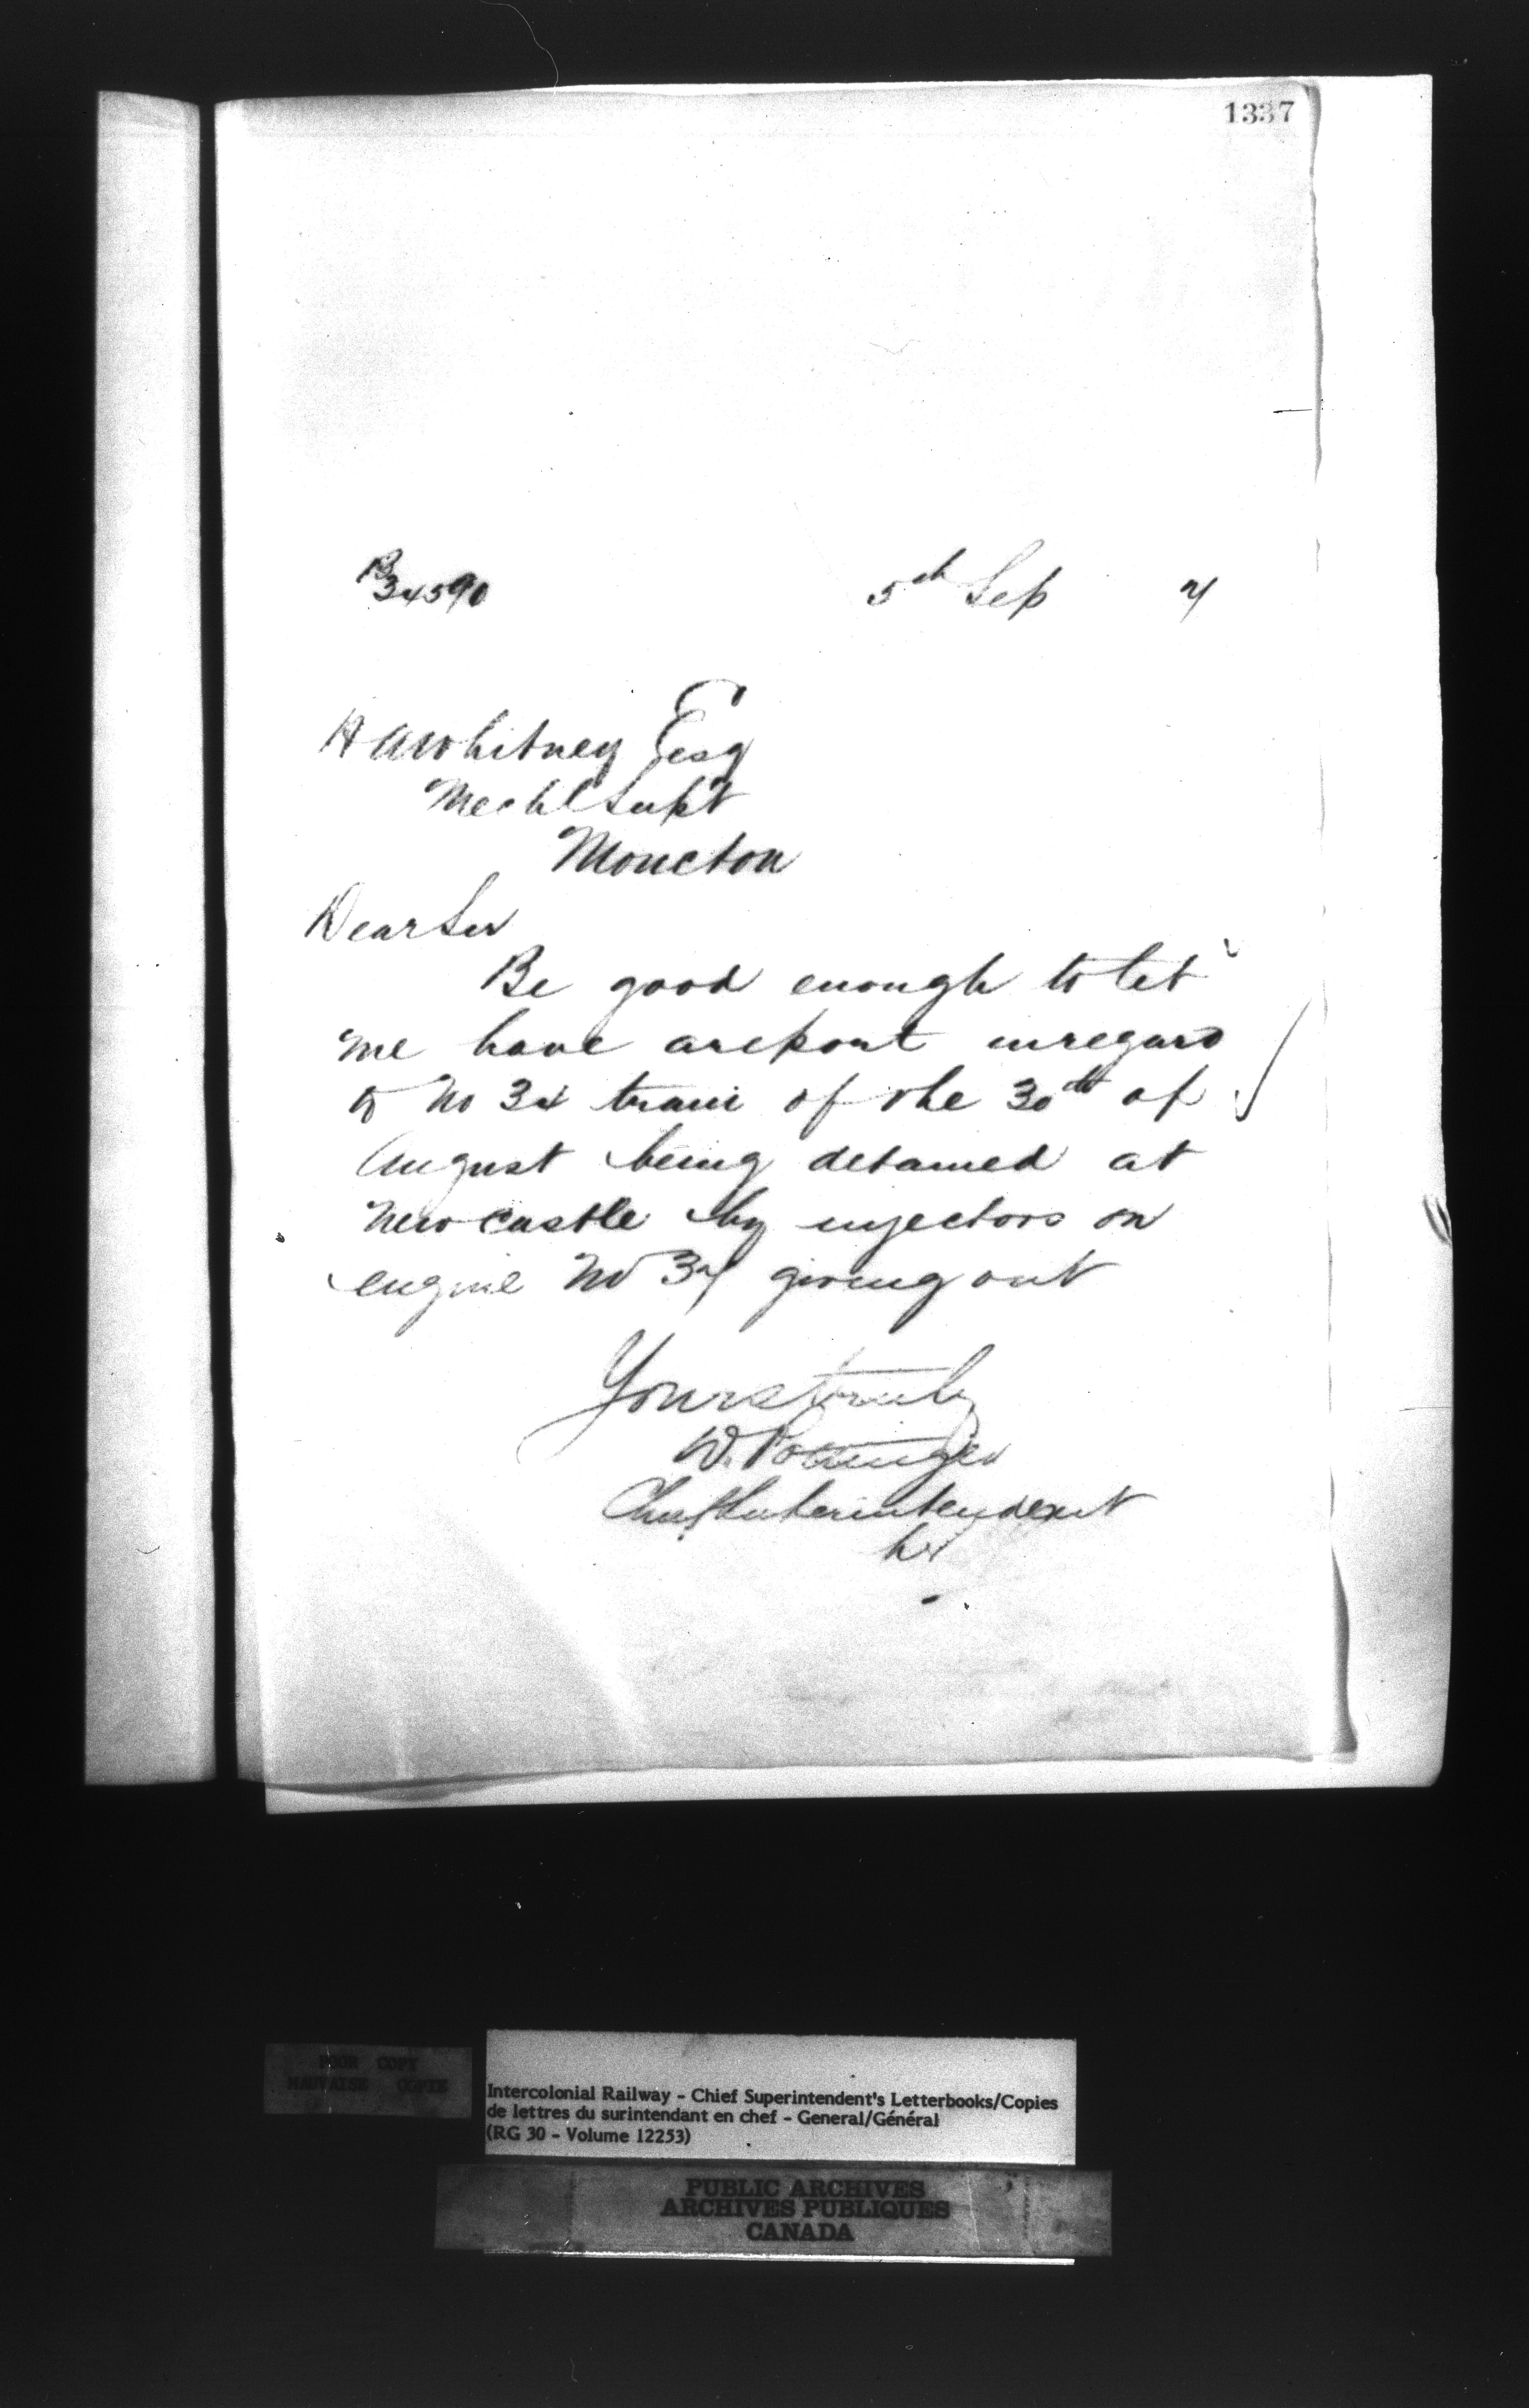 1337
B
34590
5th Sep 7
H A Whitney Esq
Mechl Supt
Moncton
Dear Sir
Be good enough to let
me have a report in regard
to No 34 train of the 30th of
August being detained at
Newcastle by injectors on
engine No 37 giving out
Yours truly
D. Pottinger
Chief Superintendent
POUR COPY
MAUVAISE COPIE
Intercolonial Railway - Chief Superintendent's Letterbooks/Copies
de lettres du surintendant en chef - General/Général
(RG 30 - Volume 12253)
PUBLIC ARCHIVES
ARCHIVES PUBLIQUES
CANADA